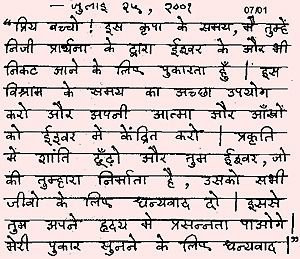 - जुलाई २५, २००१
07/01
"प्रिय बच्चो! इस कृपा के समय, मैं तुम्हें
निजी प्रार्थना के द्वारा ईश्वर के और भी
निकट आने के लिए पुकारता हूँ| इस
विश्राम के समय का अच्छा उपयोग
करो और अपनी आत्मा और आँखों
को ईश्वर में केंद्रित करो | प्रकृति
में शांति ढूँढ़ो और तुम ईश्वर, जो
की तुम्हारा निर्माता है, उसको सभी
जीवो के लिए धन्यवाद दो| इससे
तुम अपने हृदय में प्रसन्नता पाओगे|
मेरी पुकार सुनने के लिए धन्यवाद|"